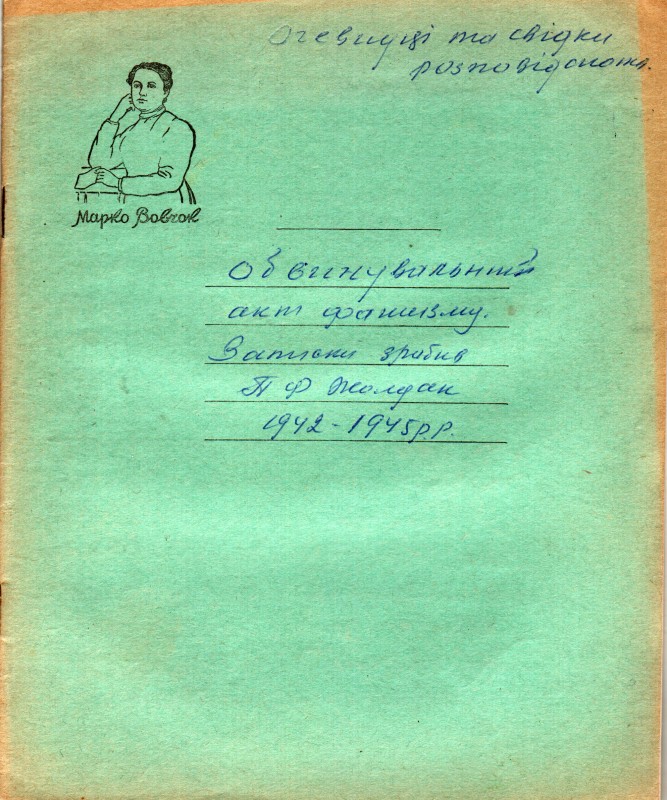 Очевидці та свідки
розповідають.
Марко Вовчок
Обвинувальний
акт фашизму.
Записки зробив
П Ф Жолдак
1942-1945р.р.